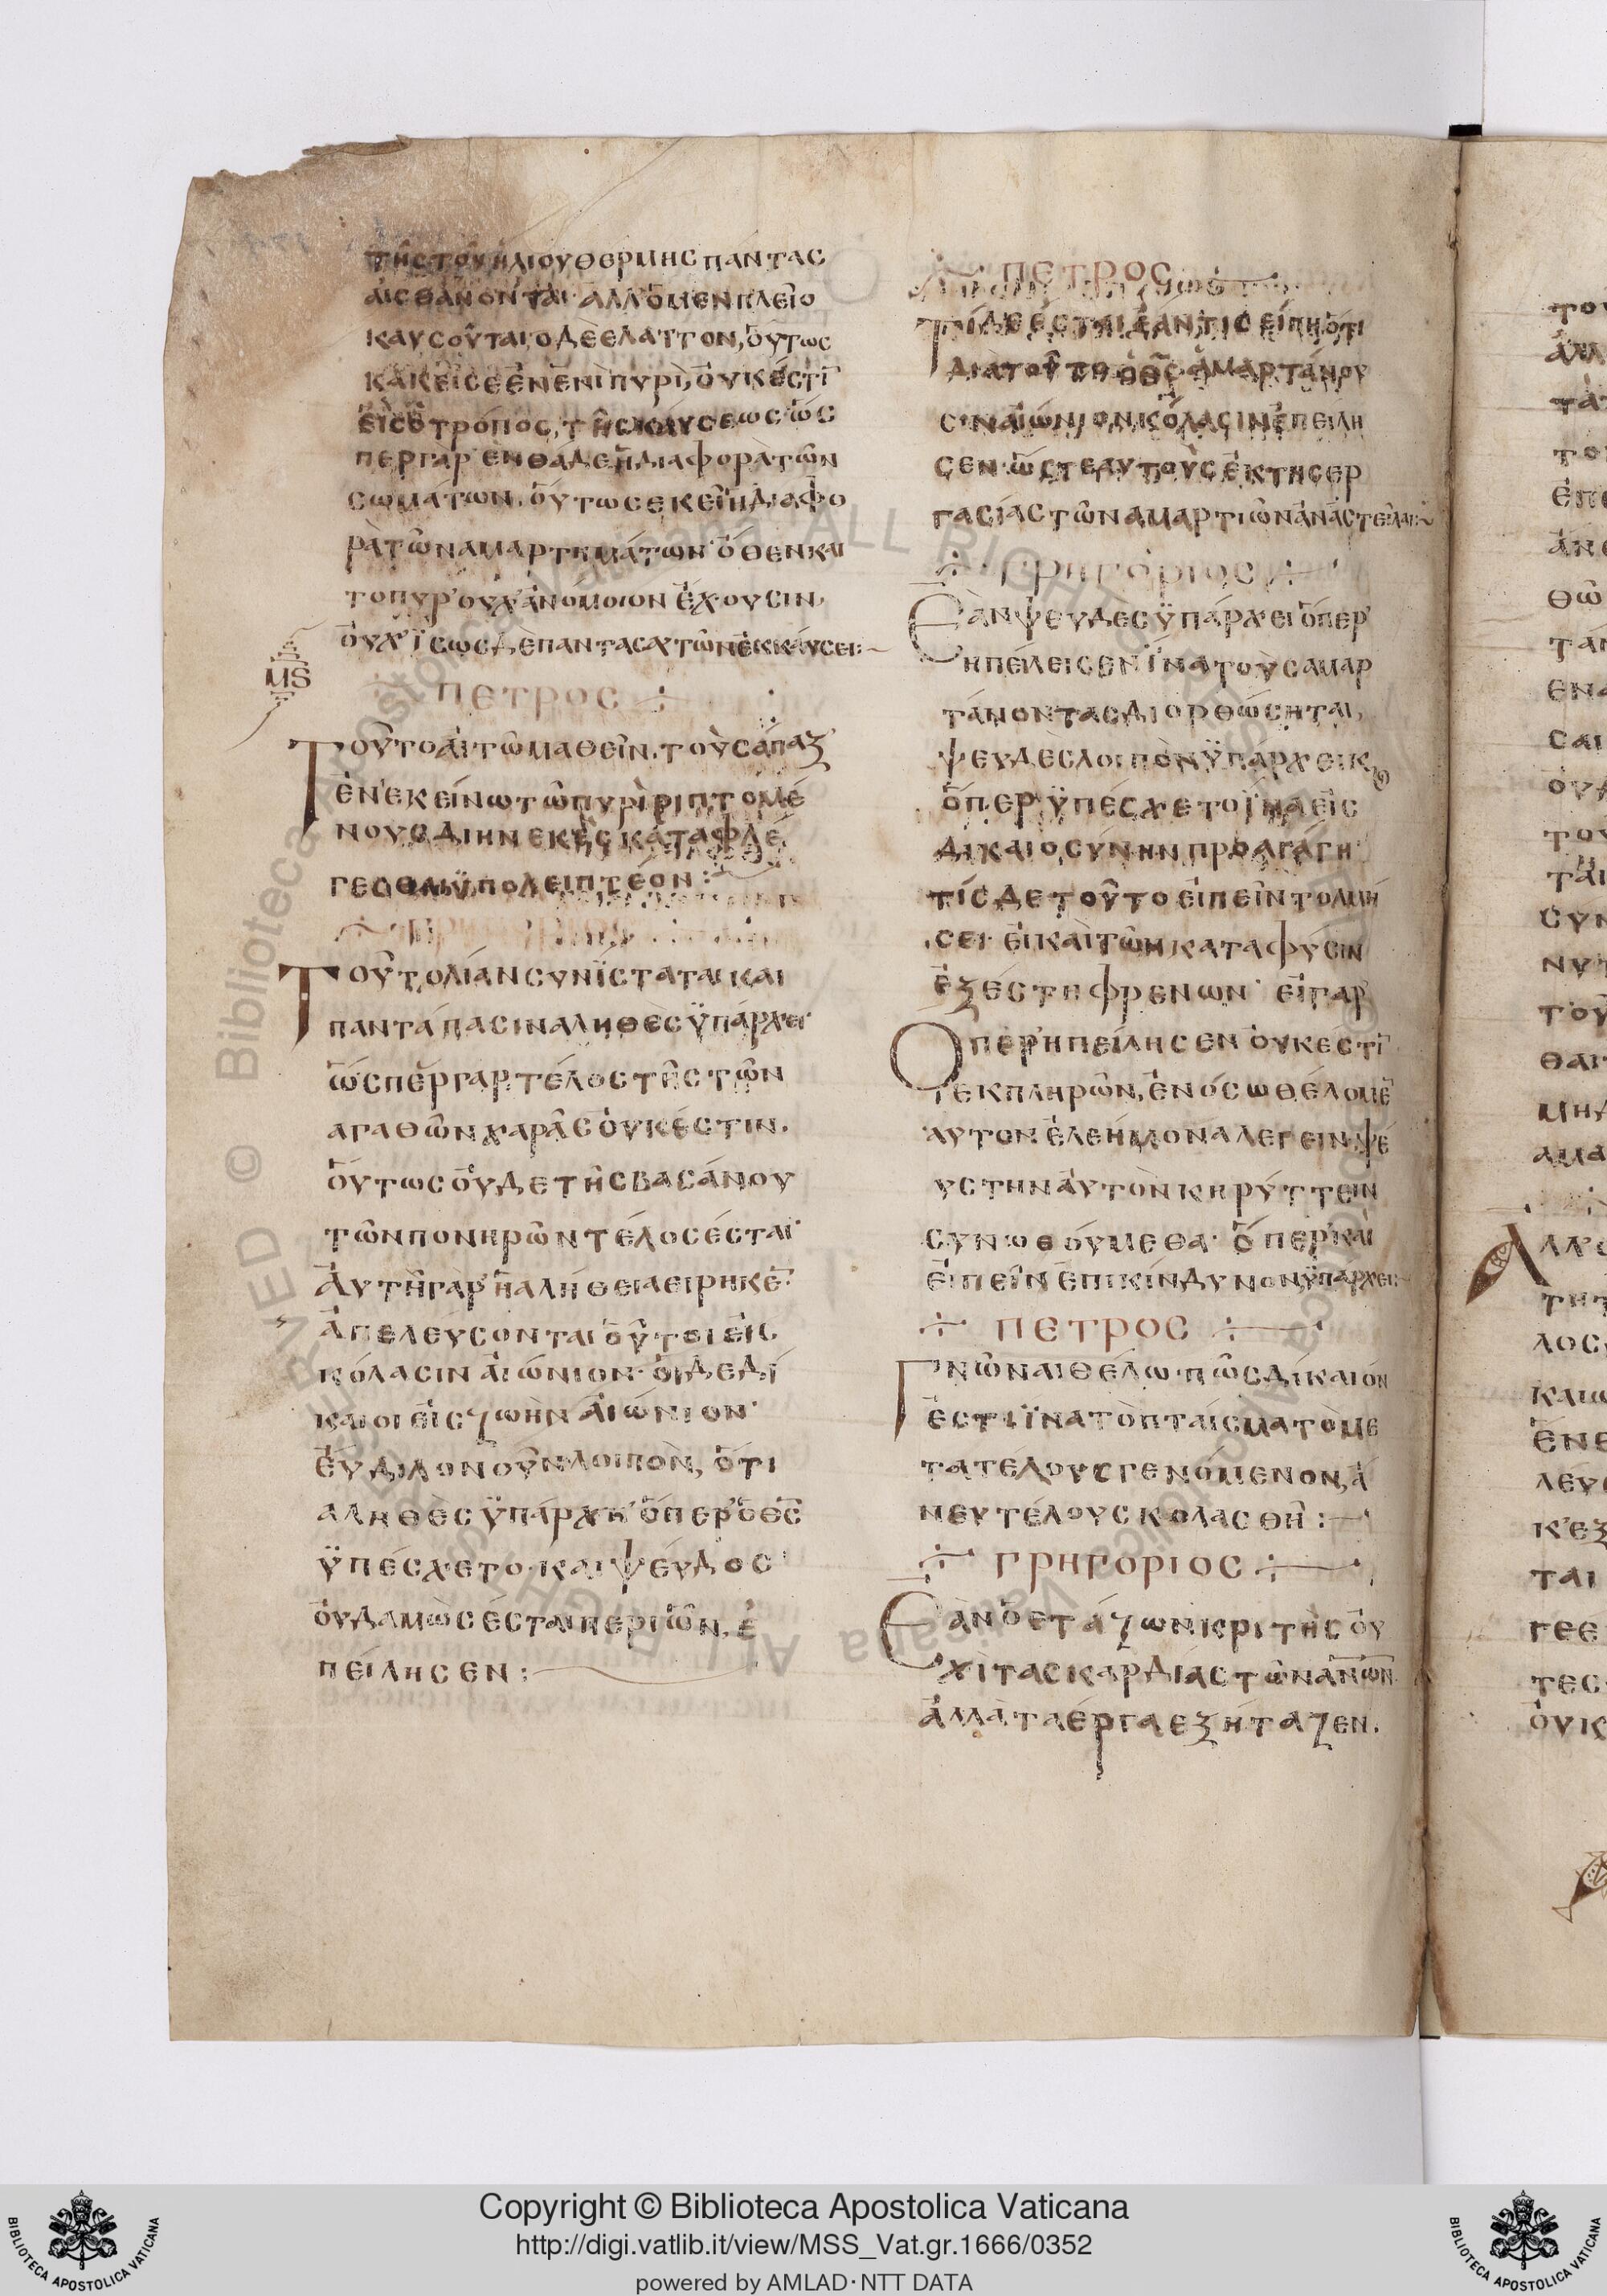 τῆς τοῦ ἡλίου θέρμης πάντας
αἰσθάνονται· ἀλλ' ὁ μὲν πλεῖο
καυσοῦται, ὁ δὲ ἔλαττον, οὕτως
κακεῖσε ἐν ἑνὶ πυρὶ, οὐκ ἔστι
εἷς ὁ τρόπος, τῆς καύσεως· ὥς
περ γὰρ ἐνθάδε ἡ διαφορὰ τῶν
σωμάτων, οὕτως ἐκεῖ ἡ διαφο
ρὰ τῶν ἁμαρτημάτων· ὅθεν καὶ
τὸ πῦρ οὐχ' ἀνόμοιον ἔχουσιν,
οὐχ' ἴσως δὲ πάντας αὐτῶν ἐκκαύσει:
ΜϚ
ΠΕΤΡΟΣ
Τοῦτο αἰτῶ μαθεῖν, τοὺς ἅπαξ
ἐν ἐκείνω τῶ πυρὶ ῥιπτομέ
νους διηνεκῶς καταφλέ
γεσθαι ὑπολειπτέον:
ΓΡΗΓΟΡΙΟΣ
Τοῦτο λίαν συνίσταται καὶ
παντάπασιν ἀληθὲς ὑπάρχει·
ὥσπερ γὰρ τέλος τῆς τῶν
ἀγαθῶν χαρᾶς οὐκ ἔστιν.
οὕτως οὐδὲ τῆς βασάνου
τῶν πονηρῶν τέλος ἔσται·
Αὐτὴ γὰρ ἡ ἀλήθεια εἴρηκε·
ἀπελεύσονται οὗτοι εἰς
κόλασιν αἰώνιον· οἱ δὲ δί
καιοι εἰς ζωὴν αἰώνιον·
εὔδηλον οὖν λοιπὸν, ὅτι
ἀληθὲς ὑπάρχη ὅπερ ὁ θς
ὑπέσχετο· καὶ ψεύδος
οὐδαμῶς ἔσται περὶ ὧν, ἐ
πείλησεν:
ΠΕΤΡΟΣ
Τί δὲ ἔσται ἐάν τις εἴπη ὅτι
διὰ τοῦτο ὁ θς ἁμαρτάνου
σιν αἰώνιον κόλασιν ἐπείλη
σεν· ὥστε αὐτοὺς ἐκ τῆς ἐρ
γασίας τῶν ἁμαρτιῶν ἀναστεῖλαι:
ΓΡΗΓΟΡΙΟΣ
Ἐὰν ψευδὲς ὑπάρχει ὅπερ
ἠπείλεισεν ἵνα τοὺς ἁμαρ
τάνοντας διορθώσηται,
ψευδὲς λοιπὸν ὑπάρχει κ
ὅπερ ὑπέσχετο ἵνα εἰς
δικαιοσύνην προαγάγη·
τίς δὲ τοῦτο εἰπεῖν τολμή
σει· εἰ καὶ τῶν κατὰ φύσιν
ἐξέστη φρενῶν· εἰ γὰρ
Ὅπερ ἠπείλησεν οὐκ ἔστι
ἐκπληρῶν, ἐν ὅσω θέλομε
αὐτὸν ἐλεήμονα λέγειν, ψέ
υστην αὐτὸν κηρύττειν
συνωθούμεθα· ὅπερ καὶ
εἰπεῖν ἐπικίνδυνον ὑπάρχει:
ΠΕΤΡΟΣ
Γνῶναι θέλω· πῶς δίκαιόν
ἐστι ἵνα τὸ πταίσμα τὸ με
τὰ τέλους γενόμενον, ἄ
νευ τέλους κολασθῆ:
ΓΡΗΓΟΡΙΟΣ
Ἐὰν ὁ ἐτάζων κριτὴς οὐ
χὶ τὰς καρδίας τῶν ανων
ἀλλὰ τὰ ἔργα ἐξήταζεν.
Copyright © Biblioteca Apostolica Vaticana
http://digi.vatlib.it/view/MSS_Vat.gr.1666/0352
powered by AMLAD·NTT DATA